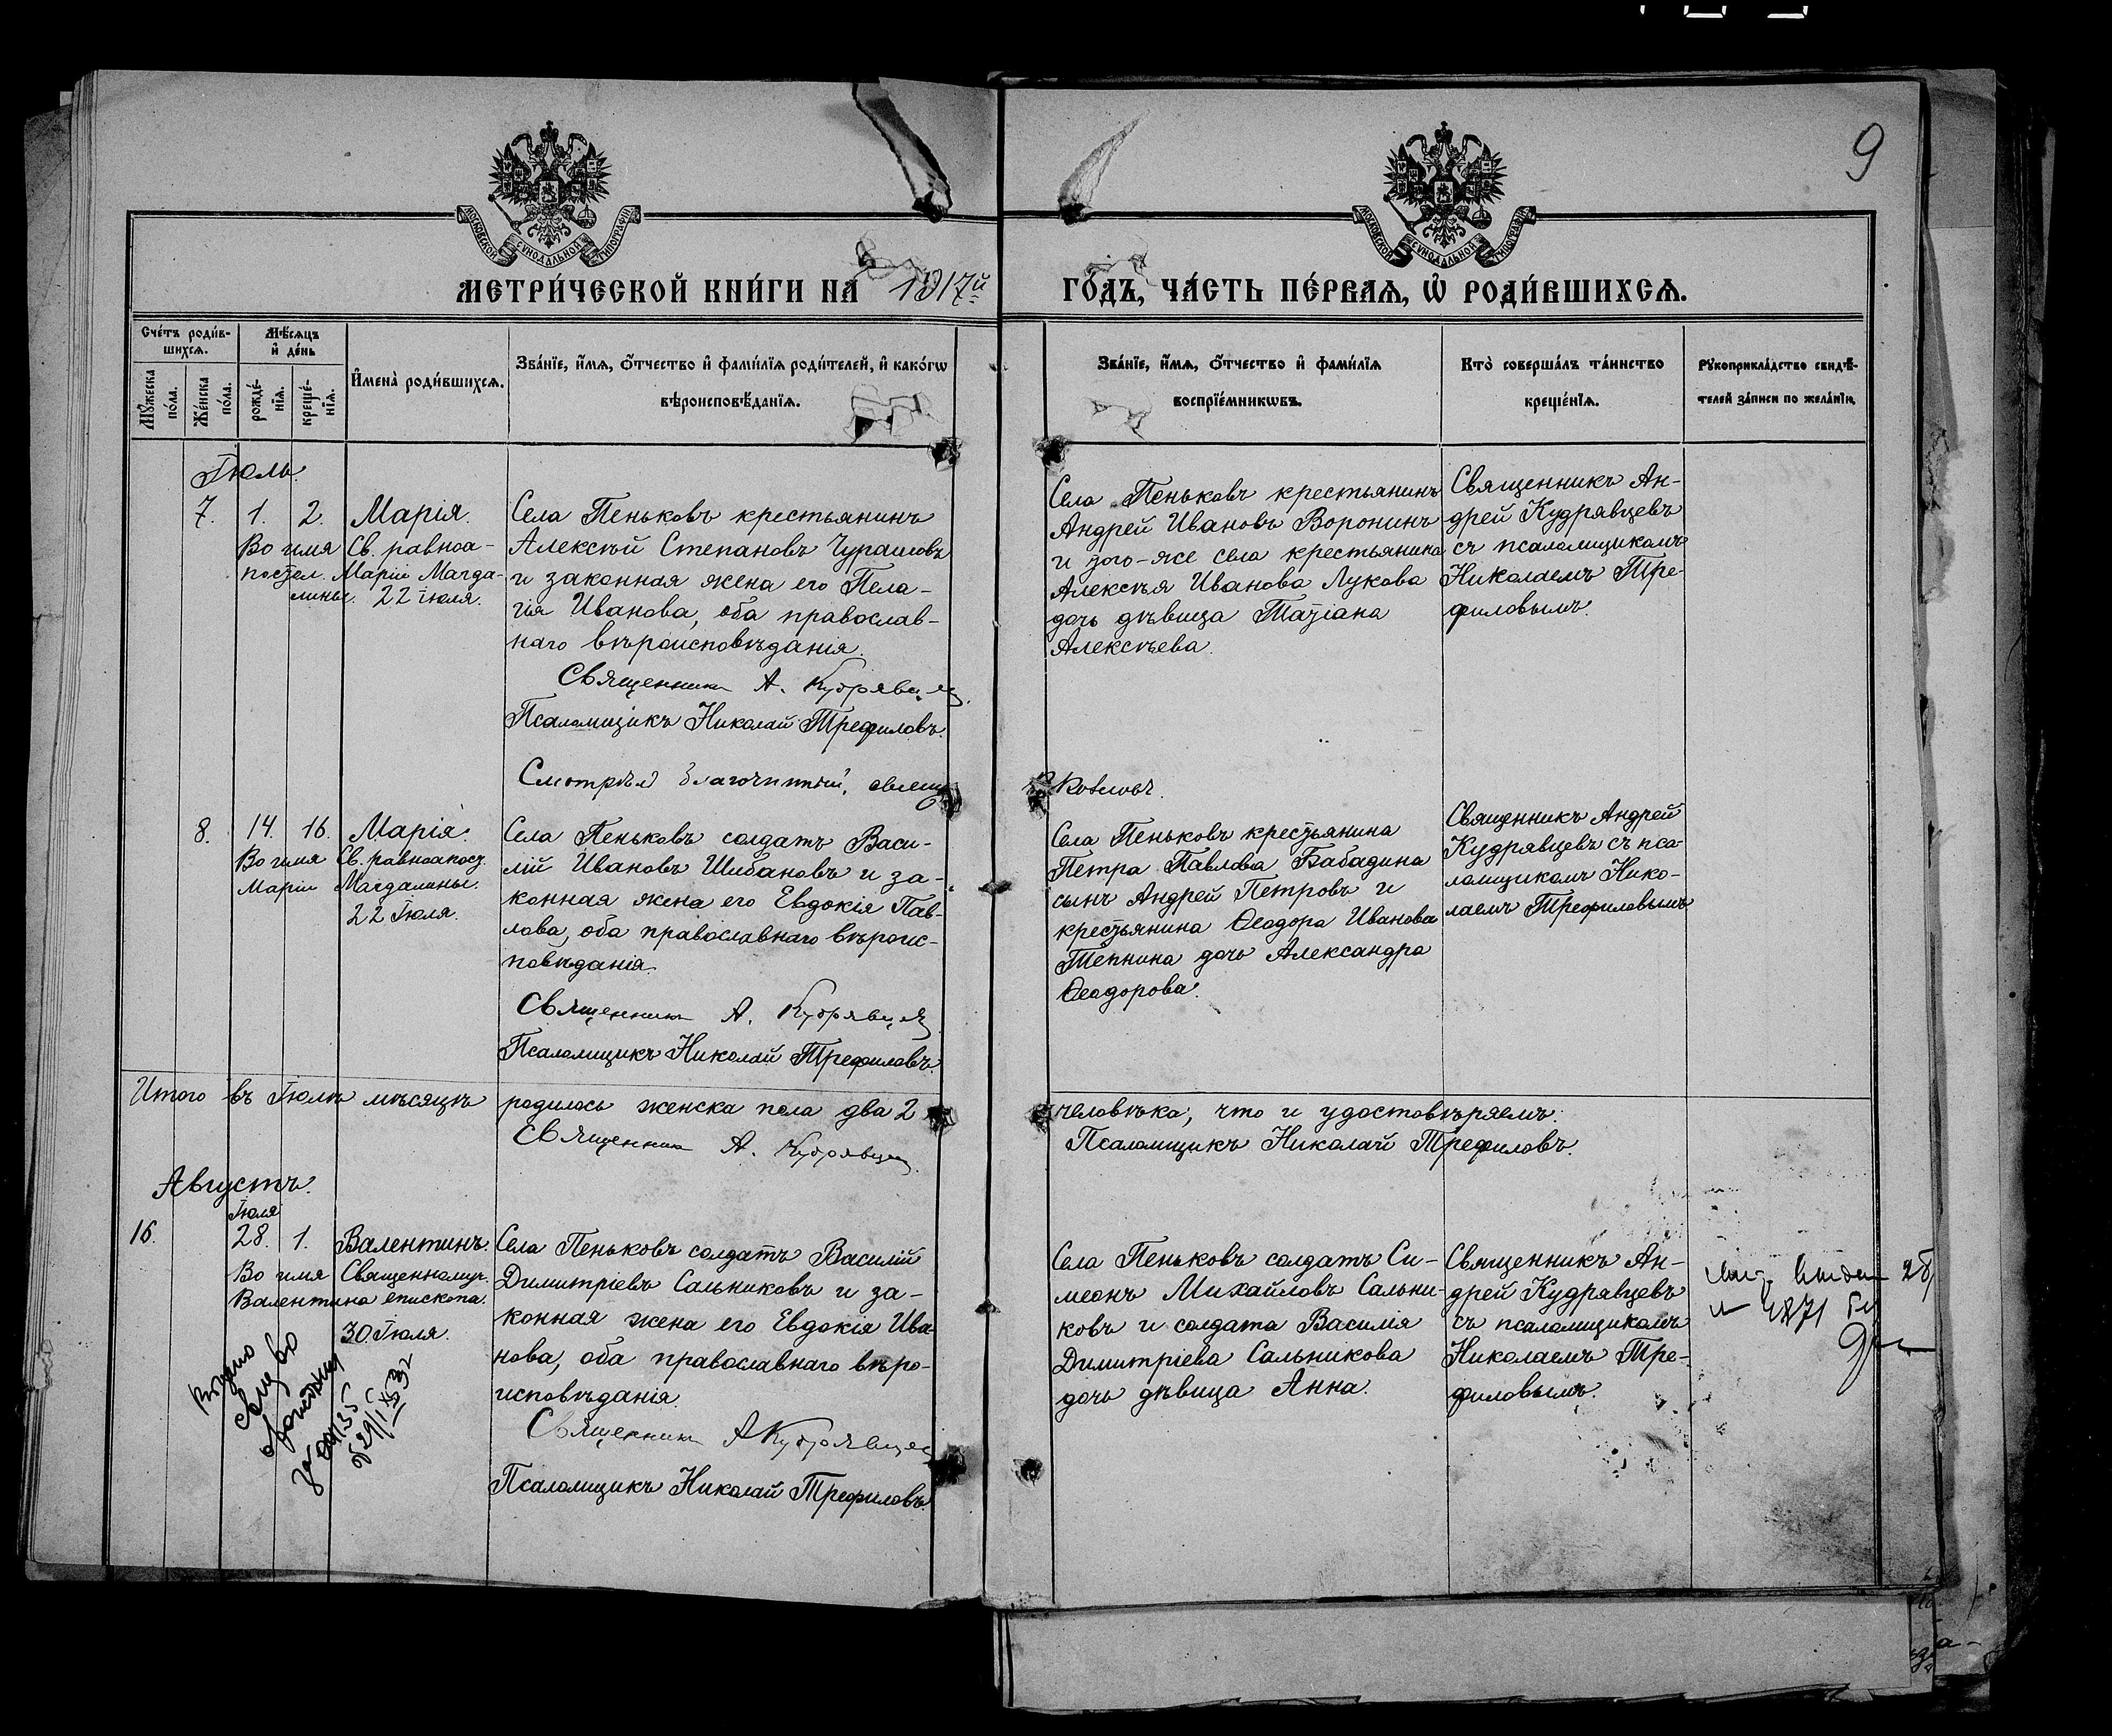 9
МОСКОВСКОЙ СУНОДАЛЬНОЙ ТИПОГРАФІИ
МОСКОВСКОЙ СУНОДАЛЬНОЙ ТИПОГРАФІИ
МЕТРИ́ЧЕСКОЙ КНИ́ГИ НА 1917й
ГО́ДЪ, ЧА́СТЬ ПЕ́РВАѦ, Ѡ҆ РОДИ́ВШИХСѦ.
Сче́тъ роди́в-
шихсѧ.
Мꙋ́жеска
по́ла.
Же́нска
по́ла.
Мѣ́сѧцъ
и҆ де́нь
рожде́-
нїѧ.
креще́-
нїѧ.
И҆мена̀ роди́вшихсѧ.
Зва́нїе, и҆́мѧ, ѻ҆́тчество и҆ фами́лїѧ роди́телей, и҆ како́гѡ
вѣроисповѣ́данїѧ.
Зва́нїе, и҆́мѧ, ѻ҆́тчество и҆ фами́лїѧ
воспрїе́мникѡвъ.
Кто̀ соверша́лъ та́инство
креще́нїѧ.
Рꙋкоприкла́дство свидѣ́-
телей за́писи по жела́нїю.
Іюль.
7. 1. 2. Марія.
Во имя Св. равноа-
постол. Маріи Магда-
лины. 22 іюля.
Села Пеньковъ крестьянинъ
Алексѣй Степановъ Чурашовъ
и законная жена его Пела-
гія Иванова, оба православ-
наго вѣроисповѣданія.
Священникъ А. Кудрявцевъ
Псаломщикъ Николай Трефиловъ.
Села Пеньковъ крестьянинъ
Андрей Ивановъ Воронинъ
и того-же села крестьянина
Алексѣя Иванова Лукова
дочь дѣвица Татіана
Алексѣева.
Священникъ Ан-
дрей Кудрявцевъ
съ псаломщикомъ
Николаемъ Тре-
филовымъ.
Смотрѣлъ благочинный, свящ.
8. 14. 16. Марія.
Во имя Св. равноапост.
Маріи Магдалины.
22 Іюля.
Села Пеньковъ солдатъ Васи-
лій Ивановъ Шибановъ и за-
конная жена его Евдокія Пав-
лова, оба православнаго вѣроис-
повѣданія.
Священникъ А. Кудрявцевъ
Псаломщикъ Николай Трефиловъ.
Села Пеньковъ крестьянина
Петра Павлова Бабадина
сынъ Андрей Петровъ и
крестьянина Ѳеодора Иванова
Тепнина дочь Александра
Ѳеодорова.
Священникъ Андрей
Кудрявцевъ съ пса-
ломщикомъ Нико-
лаемъ Трефиловымъ
Итого въ Іюлѣ мѣсяцѣ родилось женска пола два 2 человѣка, что и удостовѣряемъ:
Священникъ А. Кудрявцевъ.
Псаломщикъ Николай Трефиловъ.
Августъ.
Іюля
16. 28. 1. Валентинъ.
Во имя Священномуч.
Валентина епископа.
30 Іюля.
Села Пеньковъ солдатъ Василій
Димитріевъ Сальниковъ и за-
конная жена его Евдокія Ива-
нова, оба православнаго вѣро-
исповѣданія.
Священникъ А Кудрявцев
Псаломщикъ Николай Трефиловъ.
Села Пеньковъ солдатъ Си-
меонъ Михайловъ Сальни-
ковъ и солдата Василія
Димитріева Сальникова
дочь дѣвица Анна.
Священникъ Ан-
дрей Кудрявцевъ
съ псаломщикомъ
Николаемъ Тре-
филовымъ.
Выдано
28/
4871